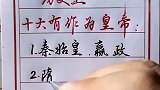 历史上
十大有作为皇帝：
1.秦始皇 嬴政
2.隋